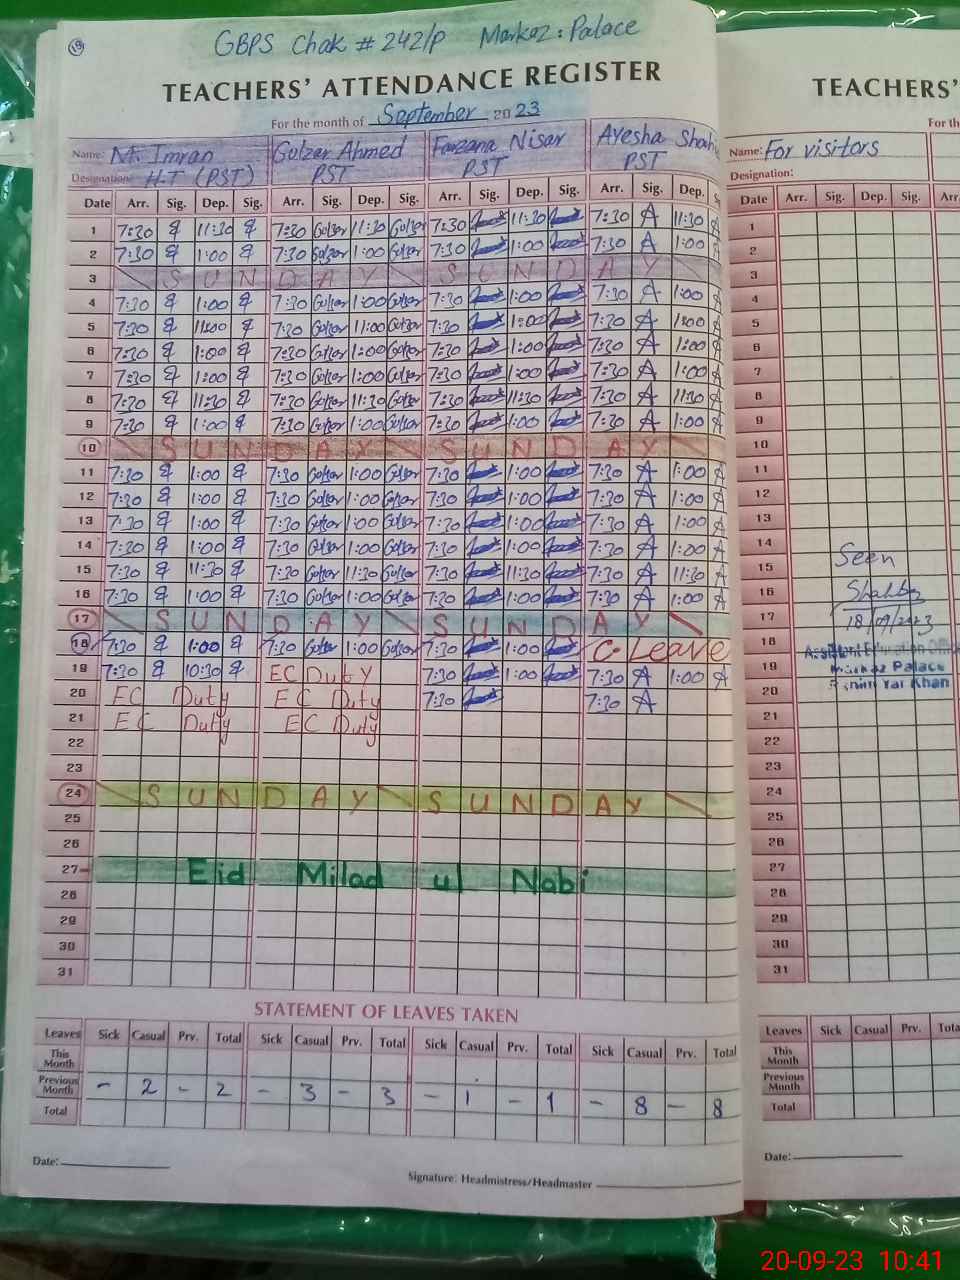 19
GBPS Chak # 242/P Markaz: Palace
TEACHERS' ATTENDANCE REGISTER
For the month of September 2023
Name: M. Imran Gulzar Ahmed Farzana Nisar Ayesha Shah
Designation: H.T (PST) PST PST PST
Date Arr. Sig. Dep. Sig. Arr. Sig. Dep. Sig. Arr. Sig. Dep. Sig. Arr. Sig. Dep.
1 7:30 11:30 7:30 Gulzar 11:30 Gulzar 7:30 11:30 7:30 A 11:30 A
2 7:30 1:00 7:30 Gulzar 1:00 Gulzar 7:30 1:00 7:30 A 1:00 A
3 SUNDAY SUNDAY
4 7:30 1:00 7:30 Gulzar 1:00 Gulzar 7:30 1:00 7:30 A 1:00 A
5 7:30 7:30 Gulzar 11:00 Gulzar 7:30 1:00 7:30 A 1:00 A
6 7:30 1:00 7:30 Gulzar 1:00 Gulzar 7:30 1:00 7:30 A 1:00 A
7 7:30 1:00 7:30 Gulzar 1:00 Gulzar 7:30 1:00 7:30 A 1:00 A
8 7:30 11:30 7:30 Gulzar 11:30 Gulzar 7:30 11:30 7:30 A 11:30 A
9 7:30 1:00 7:30 Gulzar 1:00 Gulzar 7:30 1:00 7:30 A 1:00 A
10 SUNDAY SUNDAY
11 7:30 1:00 7:30 Gulzar 1:00 Gulzar 7:30 1:00 7:30 A 1:00 A
12 7:30 1:00 7:30 Gulzar 1:00 Gulzar 7:30 1:00 7:30 A 1:00 A
13 7:30 1:00 7:30 Gulzar 1:00 Gulzar 7:30 1:00 7:30 A 1:00 A
14 7:30 1:00 7:30 Gulzar 1:00 Gulzar 7:30 1:00 7:30 A 1:00 A
15 7:30 11:30 7:30 Gulzar 11:30 Gulzar 7:30 11:30 7:30 A 11:30 A
16 7:30 1:00 7:30 Gulzar 1:00 Gulzar 7:30 1:00 7:30 A 1:00 A
17 SUNDAY SUNDAY
18 7:30 1:00 7:30 Gulzar 1:00 Gulzar 7:30 1:00 C-Leave
19 7:30 10:30 EC Duty 7:30 1:00 7:30 A 1:00 A
20 EC Duty EC Duty 7:30 7:30 A
21 EC Duty EC Duty
22
23
24 SUNDAY SUNDAY
25
26
27 Eid Milad ul Nabi
28
29
30
31
STATEMENT OF LEAVES TAKEN
Leaves Sick Casual Prv. Total Sick Casual Prv. Total Sick Casual Prv. Total Sick Casual Prv. Total
This Month
Previous Month - 2 - 2 - 3 - 3 - 1 - 1 - 8 - 8
Total
Date:
Signature: Headmistress/Headmaster
TEACHERS'
For th
Name: For visitors
Designation:
Date Arr. Sig. Dep. Sig. Arr.
1
2
3
4
5
6
7
8
9
10
11
12
13
14
15 Seen
16
17 18/09/2023
18 Assistant Education Offic
19 Markaz Palace
20 Rahim Yar Khan
21
22
23
24
25
26
27
28
29
30
31
Leaves Sick Casual Prv. Tota
This Month
Previous Month
Total
Date:
20-09-23 10:41